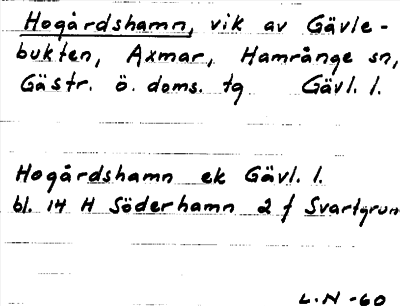 Hogårdshamn, vik av Gävle-
bukten, Axmar, Hamrånge sn,
Gästr. ö. doms. tg Gävl. l.
Hogårdshamn ek Gävl. l.
bl. 14 H Söderhamn 2 f Svartgrun
L.N -60